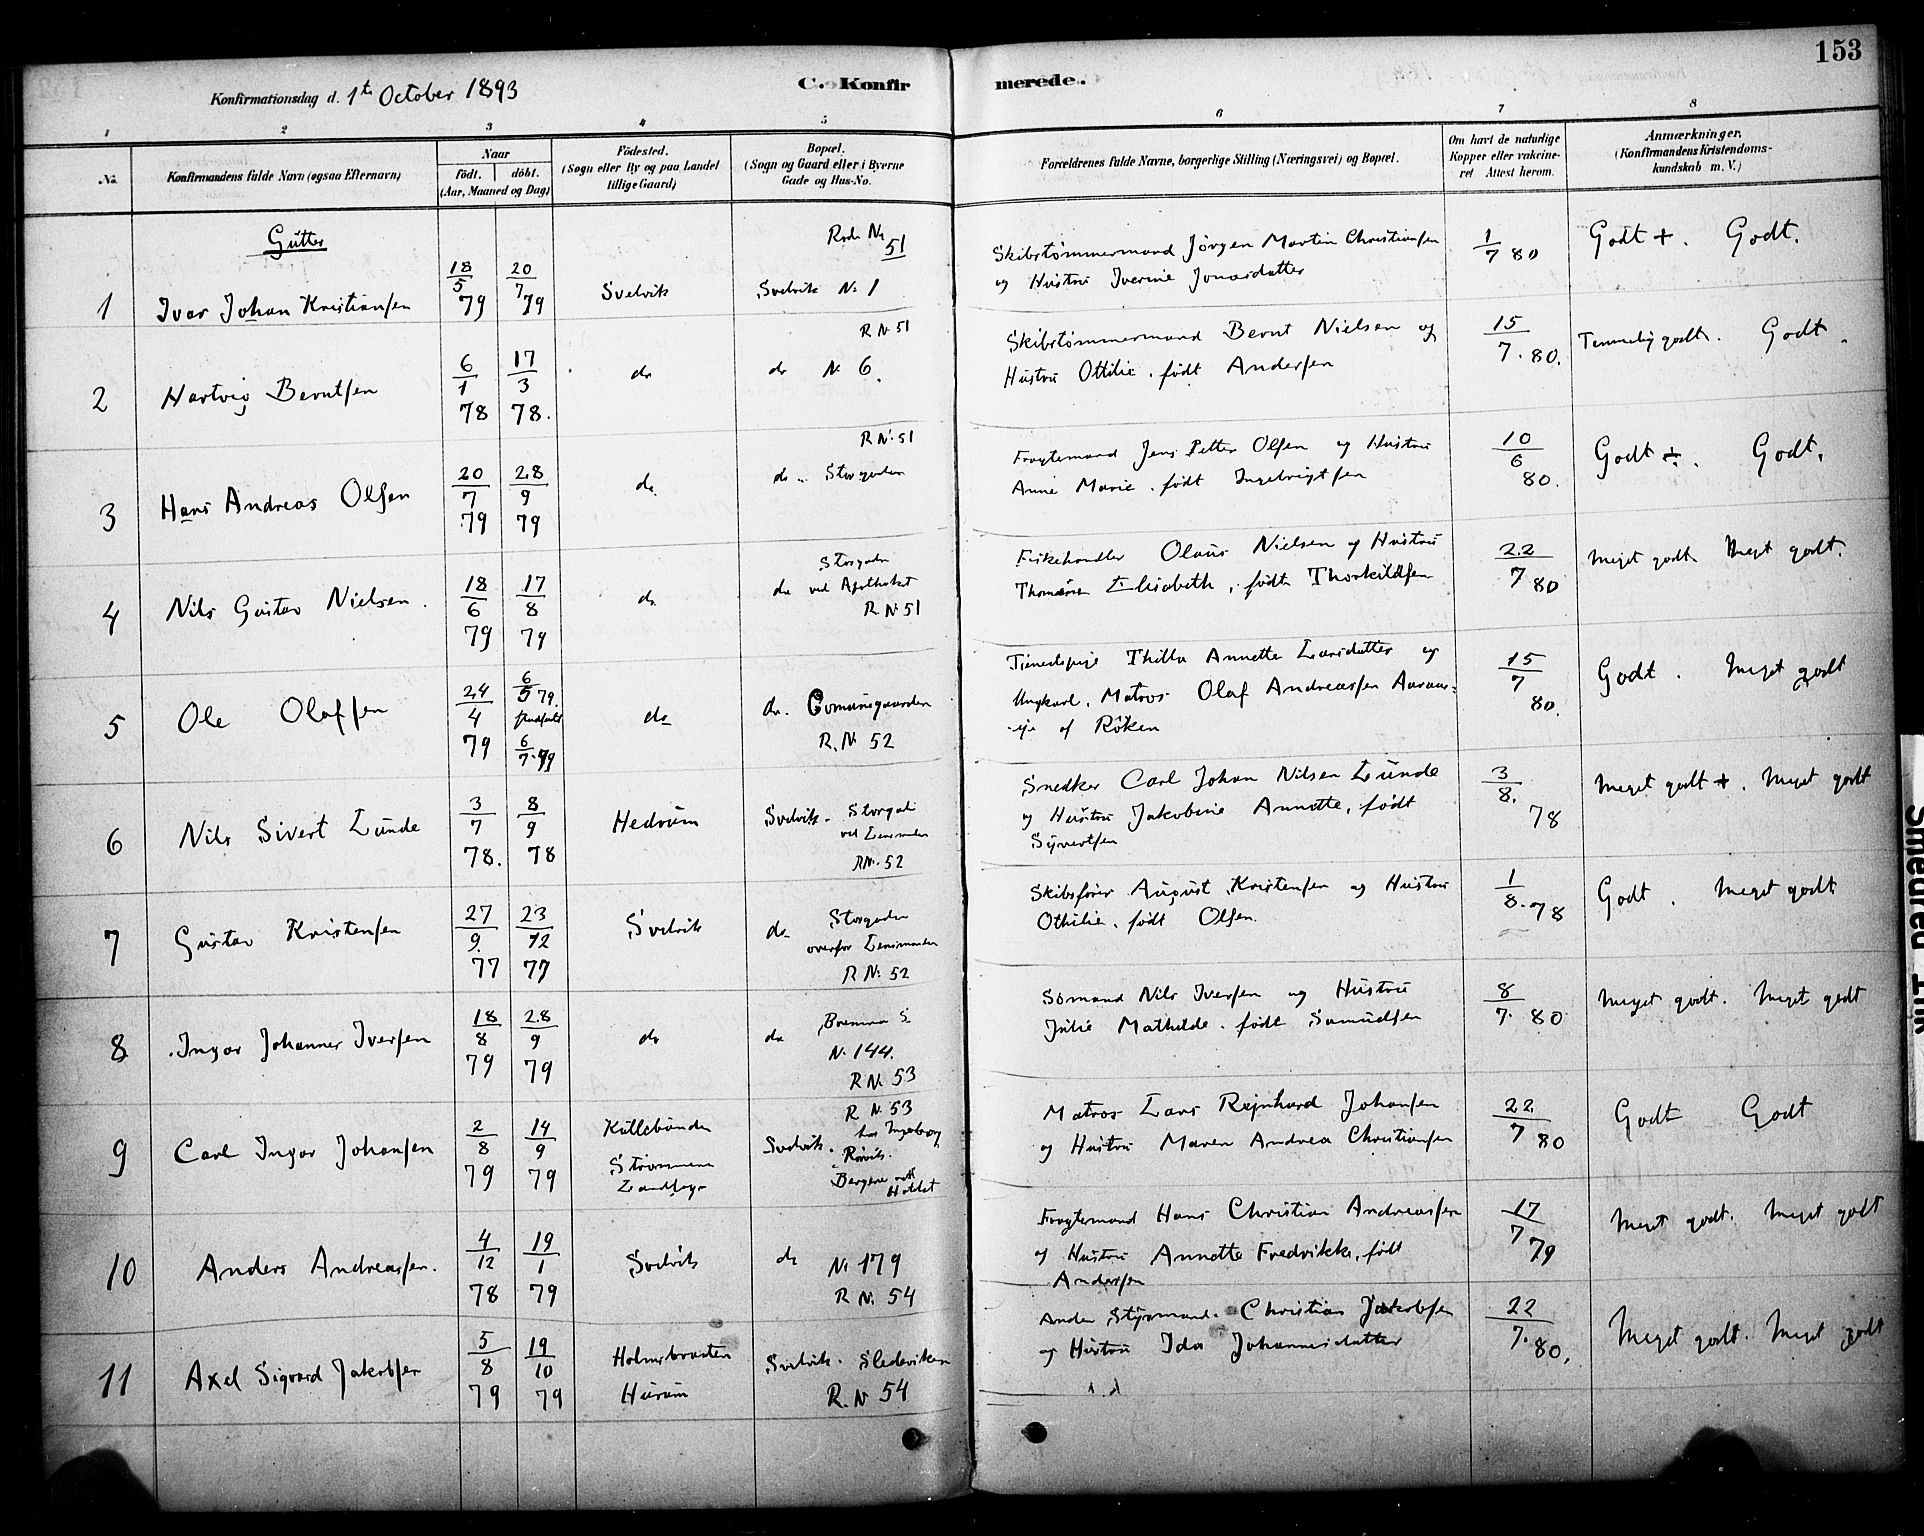 153
Konfirmationsdag d. 1te October 1893
C. Konfir
merede.
1 2 3 4 5 6 7 8
No.
Konfirmandens fulde Navn (ogsaa Efternavn)
Naar
födt. döbt.
(Aar, Maaned og Dag)
Födested.
(Sogn eller By og paa Landet
tillige Gaard)
Bopæl.
(Sogn og Gaard eller i Byerne
Gade og Hus-No.
Forældrenes fulde Navne, borgerlige Stilling (Næringsvei) og Bopæl.
Om havt de naturlige
Kopper eller vakcine-
ret Attest herom.
Anmærkninger.
(Konfirmandens Kristendoms-
kundskab m. V.)
Gutter
1 Ivar Johan Kristiansen
18/5 79
20/7 79
Svelvik
Rode No 51
Svelvik No 1
Skibstømmermand Jørgen Martin Christiansen
og Hustru Iverine Jonasdatter
1/7 80
Godt +. Godt.
2 Hartvig Berntsen
6/1 78
17/3 78.
do
R No 51
do No 6.
Skibstømmermand Bernt Nielsen og
Hustru Othilie. født Andersen
15/7. 80.
Temmelig godt. Godt.
3 Hans Andreas Olsen
20/7 79
28/9 79
do
R No 51
do Storgaden
Fragtemand Jens Petter Olsen og Hustru
Anne Marie. født Ingebrigtsen
10/6 80.
Godt ÷. Godt.
4 Nils Gustav Nielsen.
18/6 79
17/8 79
do
Storgaden
do ved Apotheket
R No 51
Fiskehandler Olaus Nielsen og Hustru
Elisabeth, født Thorkildsen
22/7 80
Meget godt. Meget godt.
5 Ole Olafsen
24/4 79
6/5 79.
6/7. 79
do
do. Comunegaarden
R. No 52
Tienestepige Thilla Annette Larsdatter og
Ungkarl. Matros Olaf Andreassen Aaraas-
eje af Røken
15/7 80.
Godt. Meget godt
6 Nils Sivert Lunde
3/7 78.
8/9 78
Hedrum
Svelvik. Storgad
ved Lensmanden
R No. 52
Snedker Carl Johan Nilsen Lunde
og Hustru Jakobine Annette, født
Syvertsen
3/8. 78
Meget godt +. Meget godt
7 Gustav Kristensen
27/9. 77
23/12 77
Svelvik
do Storgaden
overfor Lensmanden
R No. 52
Skibsfører August Kristensen og Hustru
Othilie. født Olsen.
1/8. 78
Godt. Meget godt
8 Ingvar Johannes Iversen
18/8 79
28/9 79
do
do
No. 144.
R No. 53
Sømand Nils Iversen og Hustru
Julie Mathilde. født Samuelsen
8/7. 80
Meget godt. Meget godt
9 Carl Ingvar Johansen
2/8 79
14/9 79
Killebunden
Strømmen
Landsogn
R No. 53
Svelvik. hos Ingeborg
Rørvik.
Bergene ved
Holtet
Matros Lars Rejnhard Johansen
og Hustru Maren Andrea Christiansen
22/7 80
Godt Godt
10 Anders Andreassen.
4/12 78
19/1 79
Svelvik
do No 179
R No. 54
Fragtemand Hans Christian Andreassen
og Hustru Annette Fredrikke, født
Andersen
17/7 79
Meget godt. Meget godt
11 Axel Sigvard Jakobsen
5/8 79
19/10 79
Holmsbraaten
Hurum
Svelvik. Sledeviken
R. No 54
Anden Styrmand. Christian Jakobsen
og Hustru Ida Johannesdatter
22/7. 80.
Meget godt. Meget godt
Smedred Ink